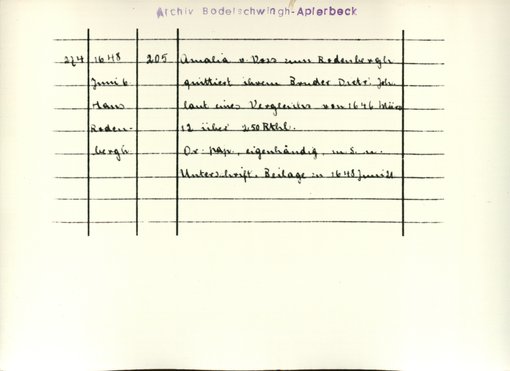 Archiv Bodelschwingh-Aplerbeck
274 1648 205 Amalia v. Voss zum Rodenbergh
Juni 6 quittiert ihrem Bruder Dietr. Joh.
Haus laut eines Vergleichs von 1646 März
Roden- 12 über 250 Rthl.
bergh. Or. pap., eigenhändig, m. S. u.
Unterschrift. Beilage zu 1648 Juni 21